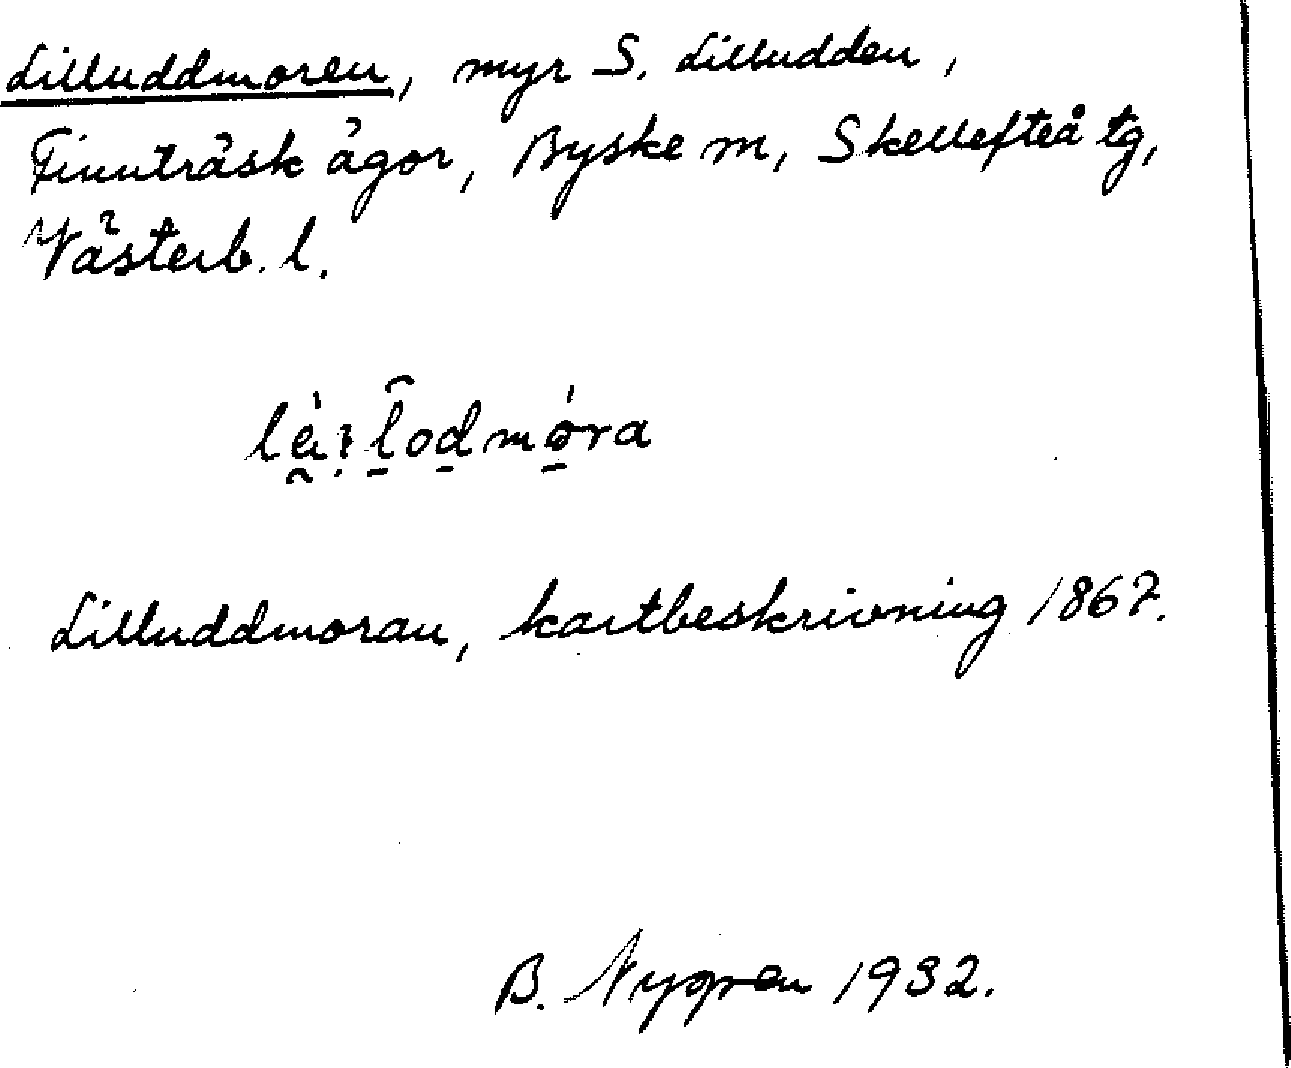 Lilluddmoren, myr S. Lilludden,
Finnträsk ägor, Byske m, Skellefteå tg,
Västerb. l.
Lilluddmoran, kartbeskrivning 1867.
B. Nygren 1932.